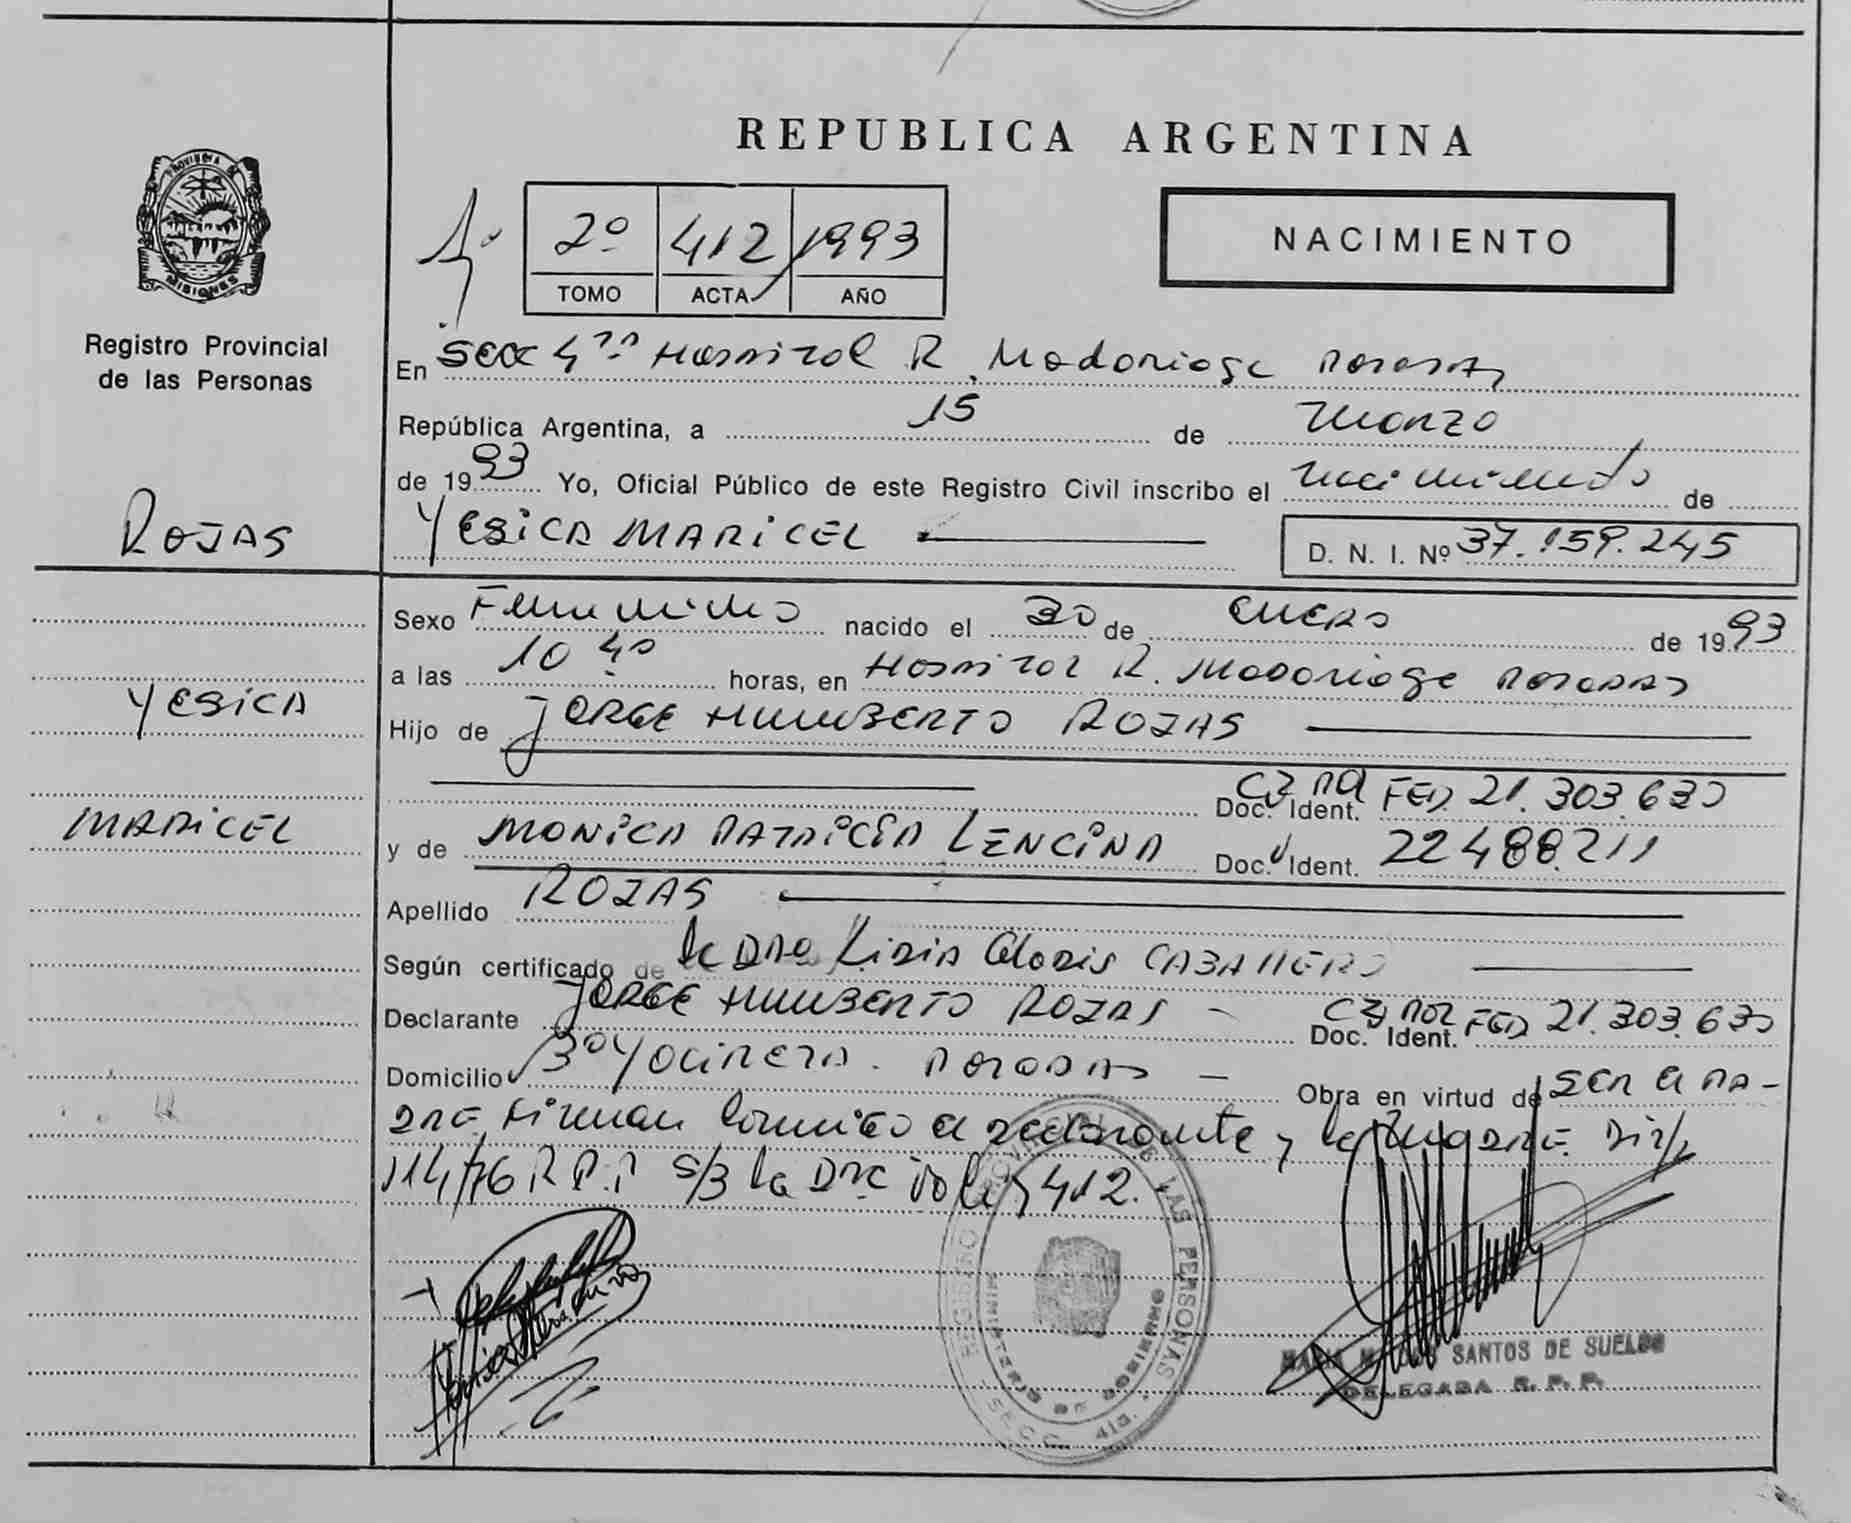 REPUBLICA ARGENTINA
PROVINCIA DE
MISIONES
Registro Provincial
de las Personas
2º 412 1993
TOMO ACTA AÑO
NACIMIENTO
En Secc 4ta Hospital R. Madariaga Posadas
República Argentina, a 15 de Marzo
de 1993 Yo, Oficial Público de este Registro Civil inscribo el nacimiento de
ROJAS
YESICA MARICEL D. N. I. Nº 37.159.245
Sexo Femenino nacido el 30 de ENERO de 1993
a las 10 40 horas, en Hospital R. Madariaga Posadas
YESICA
Hijo de JORGE HUMBERTO ROJAS
Doc. Ident. FED. 21.303.630
MARICEL
y de MONICA PATRICIA LENCINA Doc. Ident. 22488.211
Apellido ROJAS
Según certificado de la Dra Liria Gloris CABALLERO
Declarante JORGE HUMBERTO ROJAS Doc. Ident. FED 21.303.630
Domicilio Bº Yocirera. POSADAS Obra en virtud de ser el PA-
DRE, Firman conmigo el declarante y la MADRE. Disp/
114/76 R.P.P S/B la Dra 412.
REGISTRO PROVINCIAL DE LAS PERSONAS
MINISTERIO DE GOBIERNO
SECC. 4ta.
SANTOS DE SUELDO
DELEGADA R. P. P.